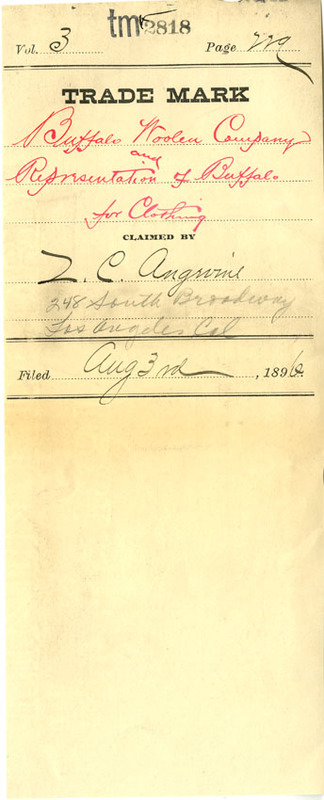 tm 2818
Vol. 3 Page 229
TRADE MARK
Buffalo Woolen Company
and
Representation of Buffalo
for Clothing
CLAIMED BY
L. C. Angevine
248 South Broadway
Los Angeles Cal
Filed Aug 3rd, 1896.